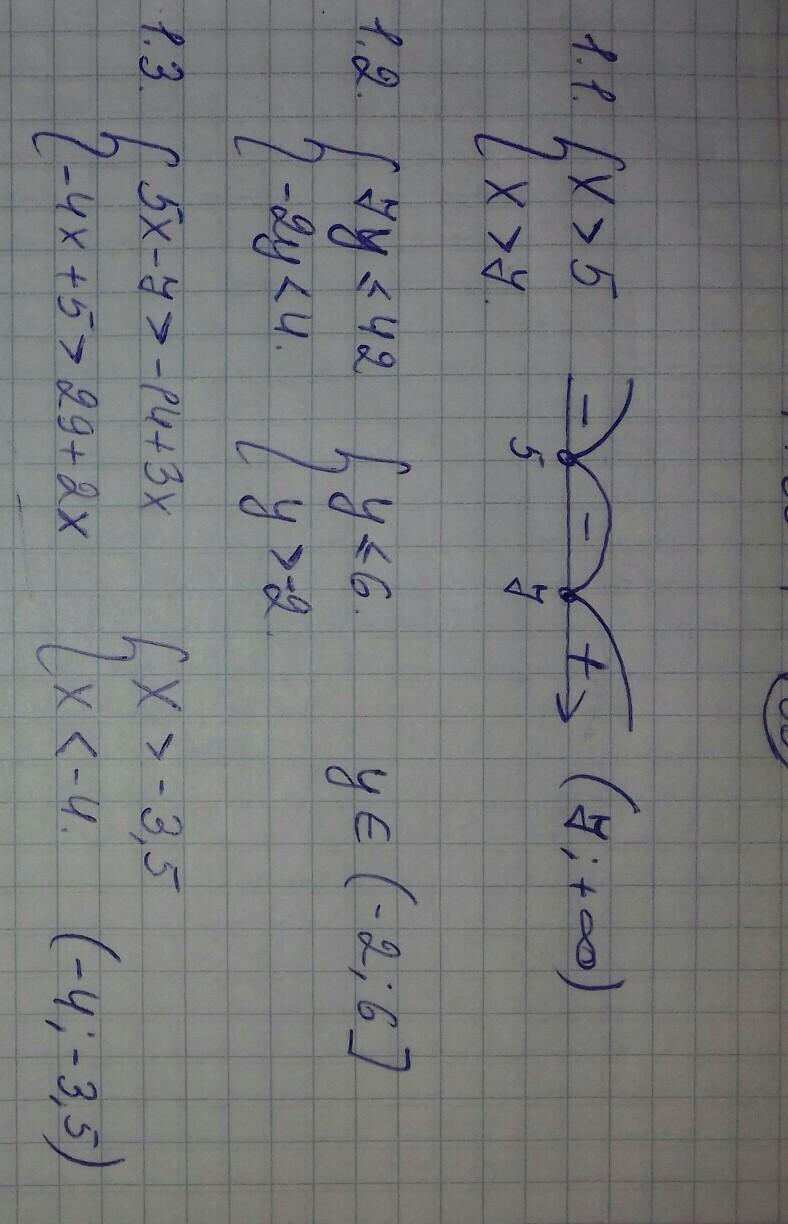 1.1. { x > 5
{ x > 7.
- 5 - 7 + (7; +∞)
1.2. { 7y ≤ 42
{ -2y < 4.
{ y ≤ 6.
{ y > -2.
y ∈ (-2; 6]
1.3. { 5x - 7 > -14 + 3x
{ -4x + 5 > 29 + 2x
{ x > -3,5
{ x < -4.
(-4; -3,5)